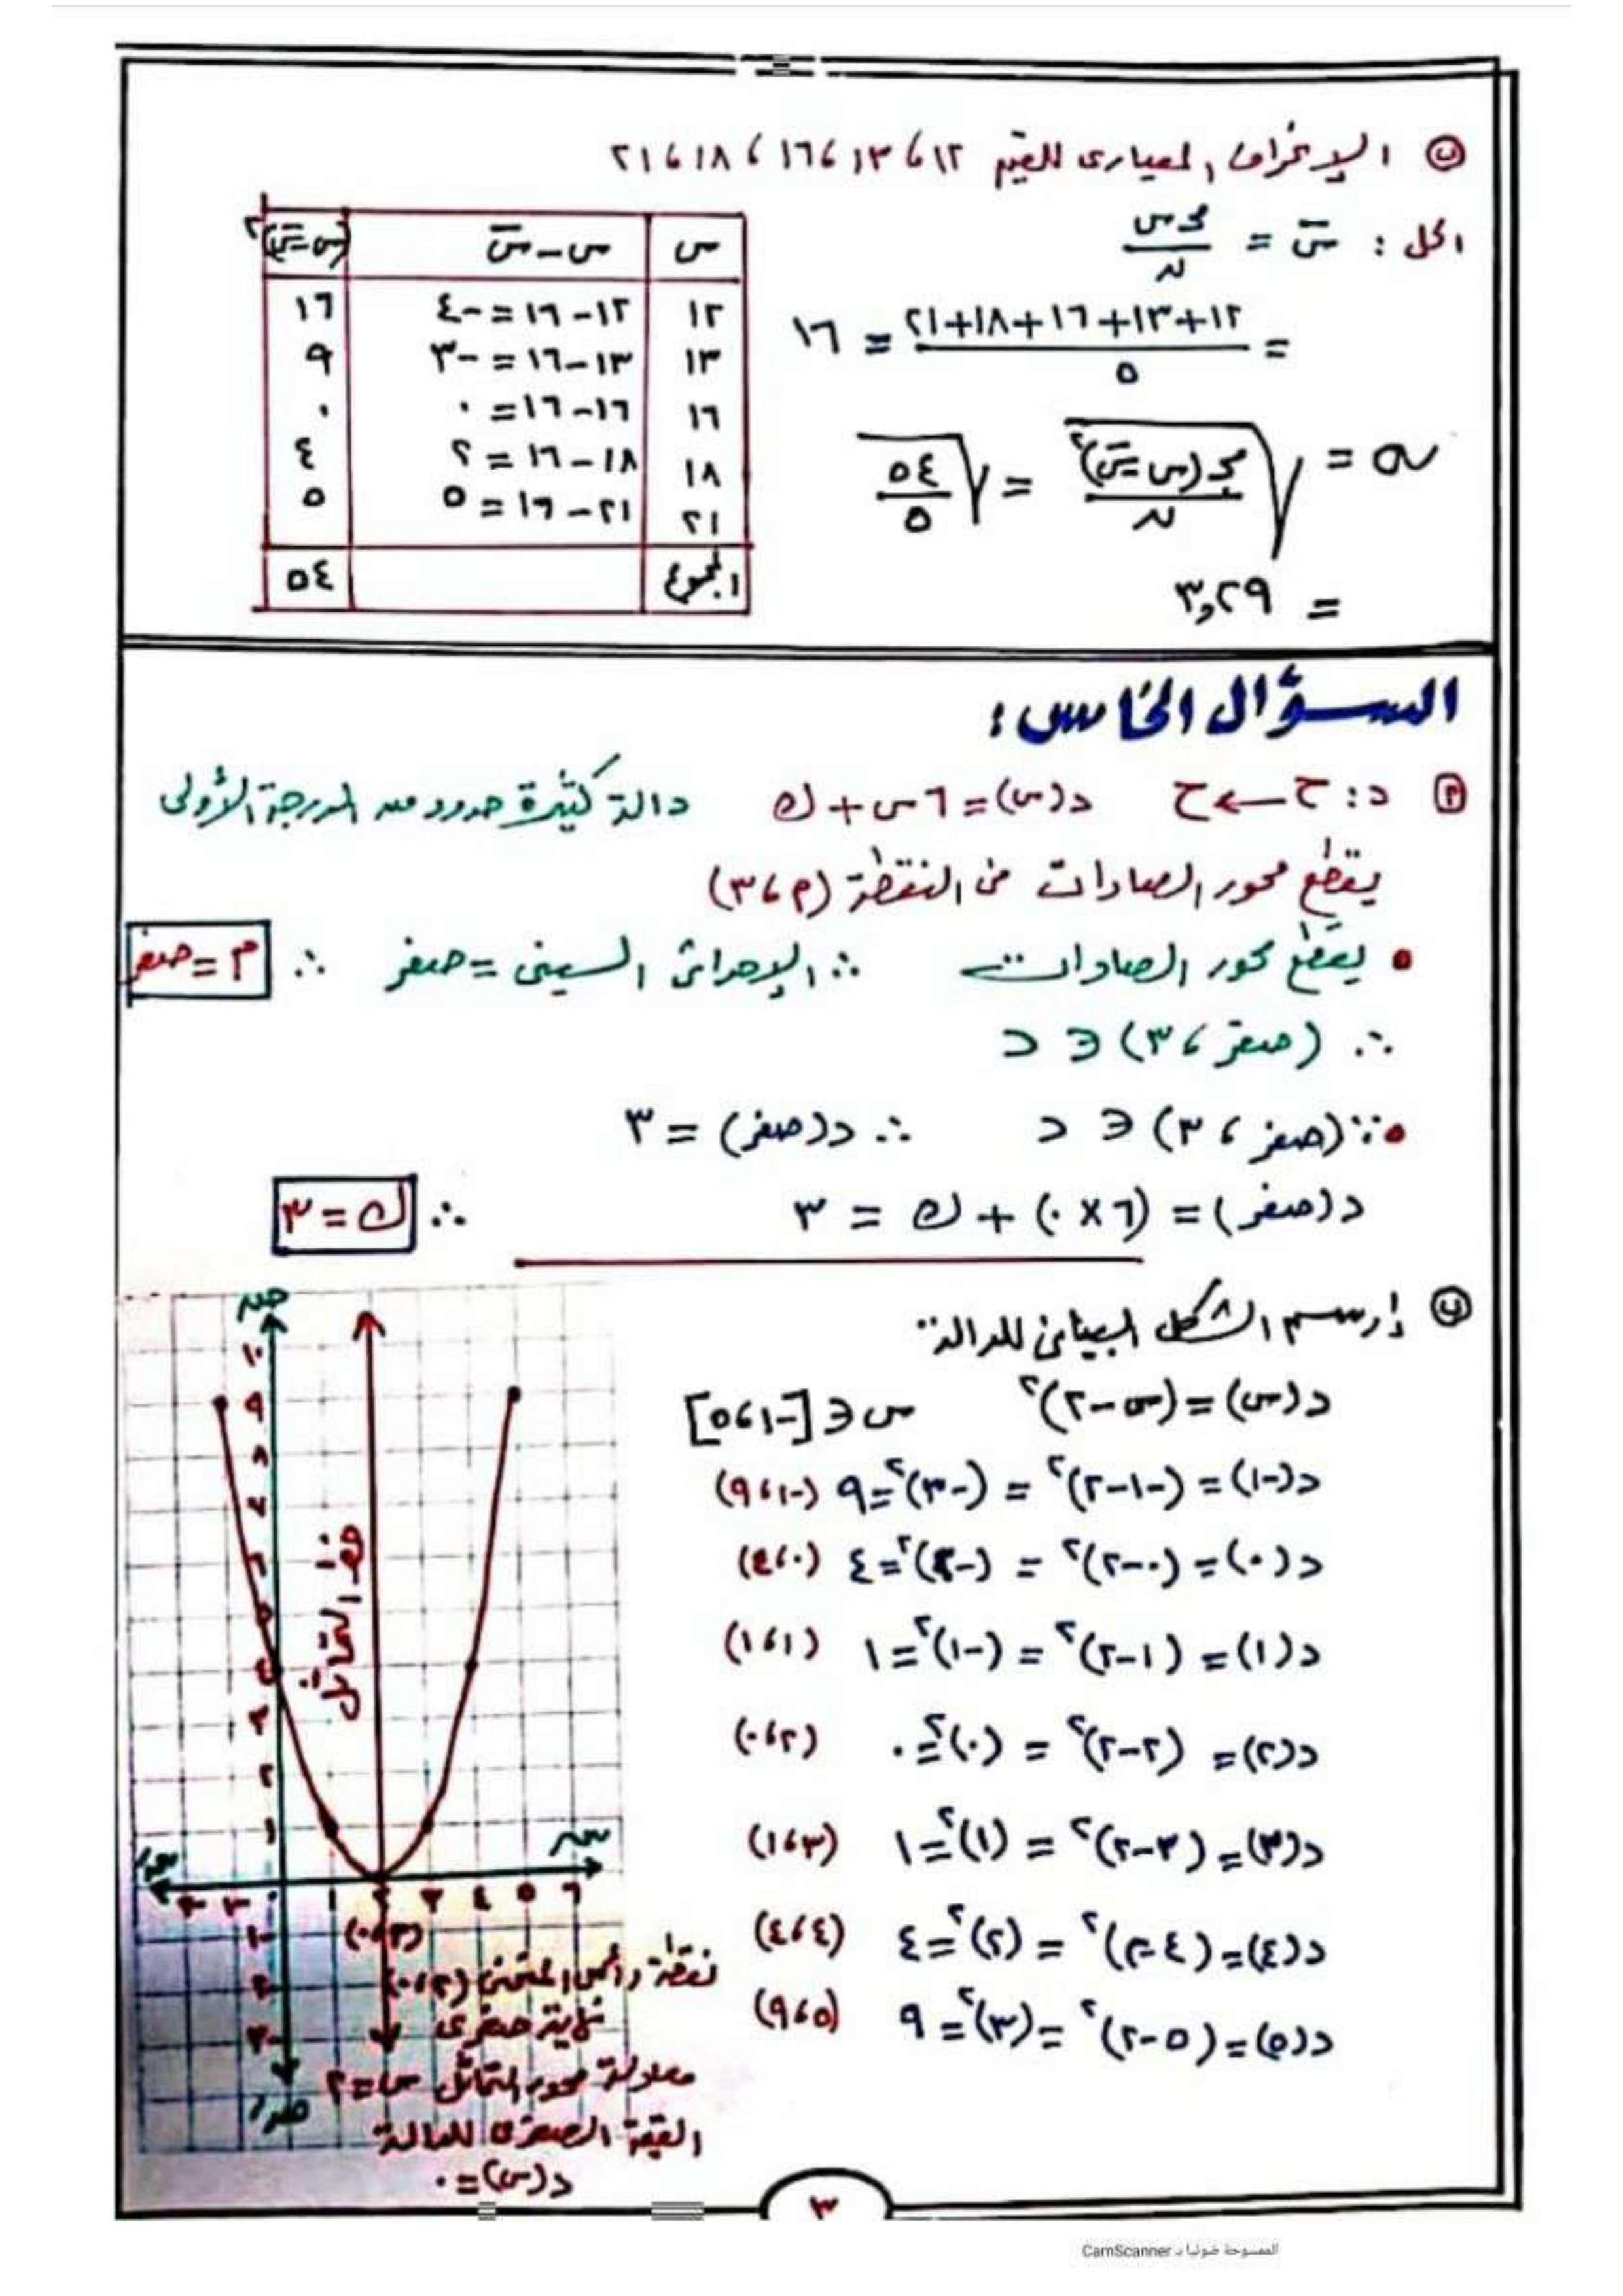 ب الإنحراف المعيارى للقيم ١٢ ، ١٣ ، ١٦ ، ١٨ ، ٢١
الحل : س̄ = مجـ س / ن
= (١٢+١٣+١٦+١٨+٢١) / ٥ = ١٦
σ = √(مجـ (س-س̄)² / ن) = √(٥٤ / ٥)
= ٣,٢٩
س | س-س̄ | (س-س̄)²
١٢ | ١٢-١٦=-٤ | ١٦
١٣ | ١٣-١٦=-٣ | ٩
١٦ | ١٦-١٦=٠ | ٠
١٨ | ١٨-١٦=٢ | ٤
٢١ | ٢١-١٦=٥ | ٥
المجموع | ٥٤
السؤال الخامس :
أ د : ح ← ح د(س)=٦س+ك دالة كثيرة حدود من الدرجة الأولى
يقطع محور الصادات فى النقطة (م ، ٣)
يقطع محور الصادات ∴ الإحداثى السينى = صفر ∴ م = صفر
∴ (صفر ، ٣) ∈ د
∵ (صفر ، ٣) ∈ د ∴ د(صفر) = ٣
د(صفر) = (٦×٠) + ك = ٣ ∴ ك = ٣
ب إرسم الشكل البيانى للدالة
د(س) = (س-٢)² س ∈ [-١ ، ٥]
د(-١) = (-١-٢)² = (-٣)² = ٩ (-١ ، ٩)
د(٠) = (٠-٢)² = (-٢)² = ٤ (٠ ، ٤)
د(١) = (١-٢)² = (-١)² = ١ (١ ، ١)
د(٢) = (٢-٢)² = (٠)² = ٠ (٢ ، ٠)
د(٣) = (٣-٢)² = (١)² = ١ (٣ ، ١)
د(٤) = (٤-٢)² = (٢)² = ٤ (٤ ، ٤)
د(٥) = (٥-٢)² = (٣)² = ٩ (٥ ، ٩)
ص
١٠
٩
٨
٧
٦
٥
٤
٣
٢
١
خط التماثل
س
سَ
٠ ١ ٢ ٣ ٤ ٥ ٦
-١
(٢ ، ٠)
صَ
نقطة رأس المنحنى (٢ ، ٠)
نهاية صغرى
معادلة محور التماثل س=٢
القيمة الصغرى للدالة
د(س)=٠
٣
الممسوحة ضوئيا بـ CamScanner